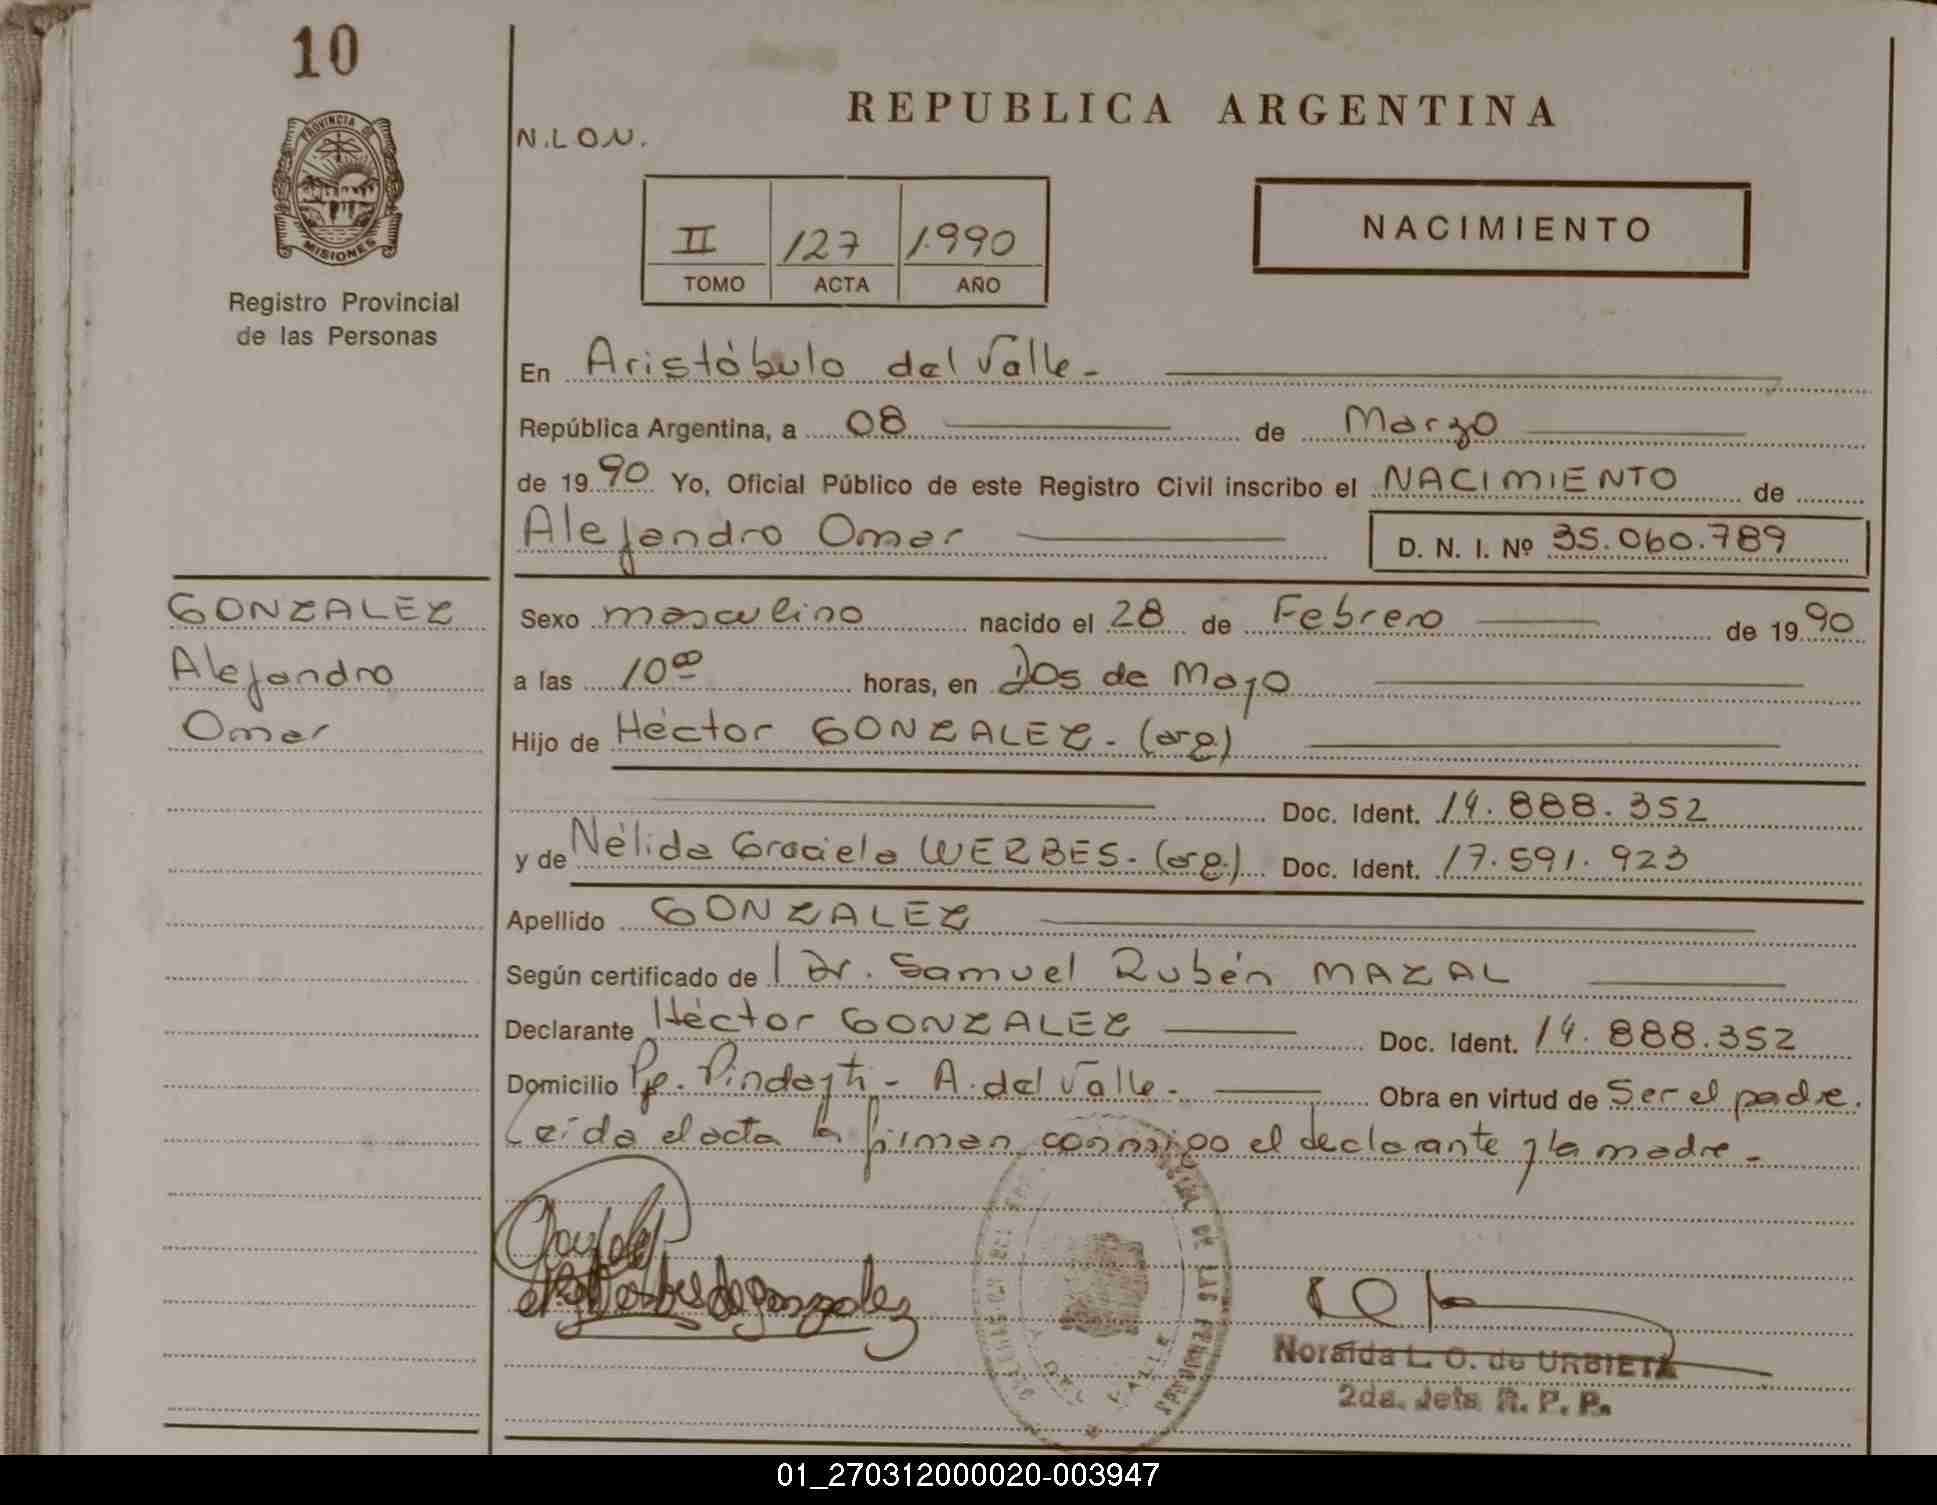 10
PROVINCIA DE
MISIONES
Registro Provincial
de las Personas
REPUBLICA ARGENTINA
N.L.O.N.
II 127 1.990
TOMO ACTA AÑO
NACIMIENTO
En Aristóbulo del Valle.-
República Argentina, a 08 de Marzo
de 1990 Yo, Oficial Público de este Registro Civil inscribo el NACIMIENTO de
Alejandro Omar D. N. I. Nº 35.060.789
GONZALEZ
Alejandro
Omar
Sexo masculino nacido el 28 de Febrero de 1990
a las 10⁰⁰ horas, en Dos de Mayo
Hijo de Héctor GONZALEZ.- (arg.)
Doc. Ident. 14.888.352
y de Nélida Graciela WERBES.- (arg.) Doc. Ident. 17.591.923
Apellido GONZALEZ
Según certificado de l Dr. Samuel Rubén MAZAL
Declarante Héctor GONZALEZ Doc. Ident. 14.888.352
Domicilio Pje. Pindayti - A. del Valle.- Obra en virtud de Ser el padre.
Leída el acta la firman conmigo el declarante y la madre.-
A. DEL VALLE
Noraida L. O. de URBIETA
2da. Jefa R. P. P.
01_270312000020-003947